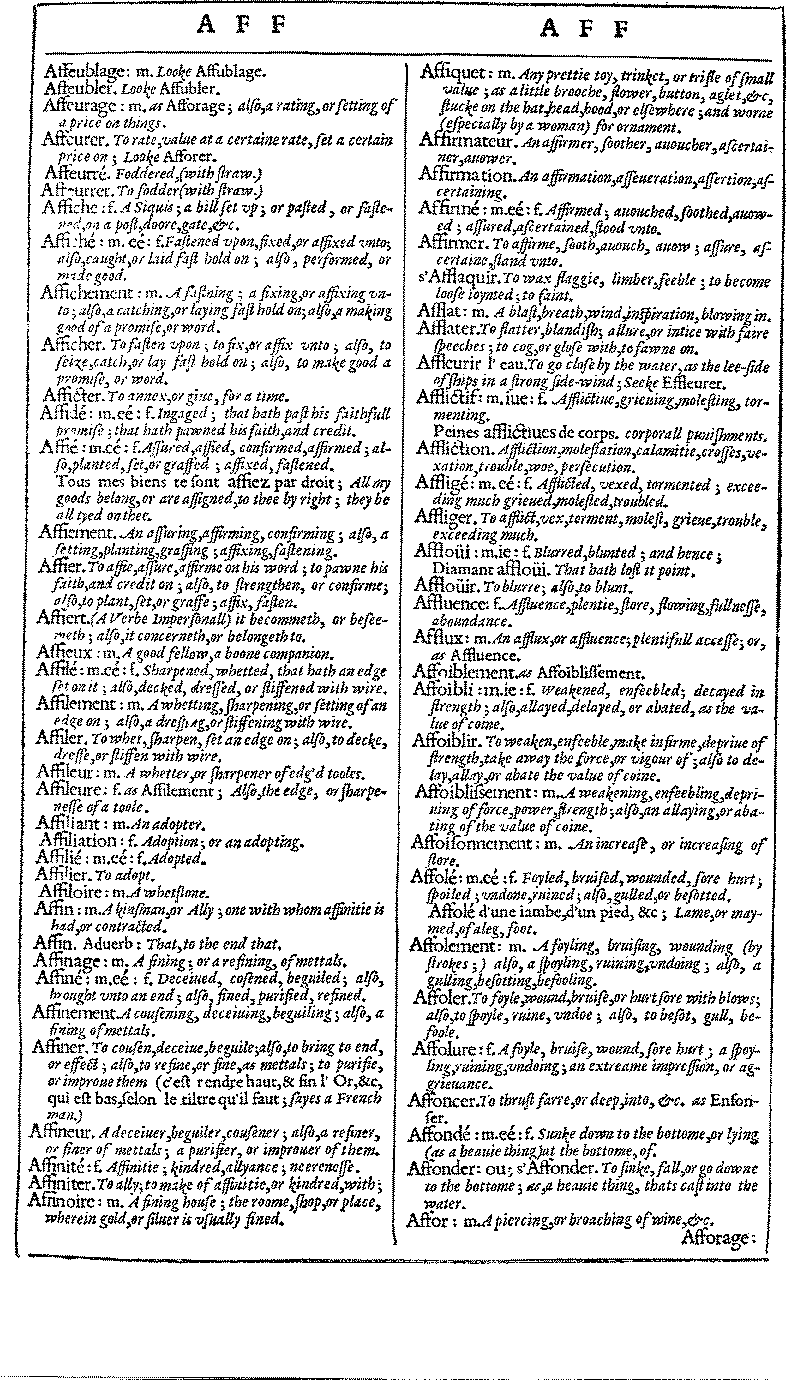 A F F
A F F
Affeublage: m. Looke Affublage.
Affeubler. Looke Affubler.
Affeurage: m. as Afforage; also, a rating, or setting of
a price on things.
Affeurer. To rate, value at a certaine rate, set a certain
price on; Looke Afforer.
Affeurré. Foddered, (with straw.)
Affeurrer. To fodder (with straw.)
Affiche: f. A Siquis; a bill set vp; or pasted, or faste-
ned, on a post, doore, gate, &c.
Affiché: m. eé: f. Fastened vpon, fixed, or affixed vnto;
also, caught, or laid fast hold on; also, performed, or
made good.
Affichement: m. A fastning; a fixing, or affixing vn-
to; also, a catching, or laying fast hold on; also, a making
good of a promise, or word.
Afficher. To fasten vpon; to fix, or affix vnto; also, to
seize, catch, or lay fast hold on; also, to make good a
promise, or word.
Afficter. To annex, or giue, for a time.
Affidé: m. eé: f. Ingaged; that hath past his faithfull
promise; that hath pawned his faith, and credit.
Affié: m. eé: f. Assured, affied, confirmed, affirmed; al-
so, planted, set, or graffed; affixed, fastened.
Tous mes biens te sont affiez par droit; All my
goods belong, or are assigned, to thee by right; they be
all tyed on thee.
Affiement. An assuring, affirming, confirming; also, a
setting, planting, graffing; affixing, fastening.
Affier. To affie, assure, affirme on his word; to pawne his
faith, and credit on; also, to strengthen, or confirme;
also, to plant, set, or graffe; affix, fasten.
Affiert. (A Verbe Impersonall) it becommeth, or besee-
meth; also, it concerneth, or belongeth to.
Affieux: m. A good fellow, a boone companion.
Affilé: m. eé: f. Sharpened, whetted, that hath an edge
set on it; also, decked, dressed, or stiffened with wire.
Affilement: m. A whetting, sharpening, or setting of an
edge on; also, a dressing, or stiffening with wire.
Affiler. To whet, sharpen, set an edge on; also, to decke,
dresse, or stiffen with wire.
Affileur: m. A whetter, or sharpener of edg'd tooles.
Affileure: f. as Affilement; Also, the edge, or sharpe-
nesse of a toole.
Affiliant: m. An adopter.
Affiliation: f. Adoption; or an adopting.
Affilié: m. eé: f. Adopted.
Affilier. To adopt.
Affiloire: m. A whetstone.
Affin: m. A kinsman, or Ally; one with whom affinitie is
had, or contracted.
Affin. Aduerb: That, to the end that.
Affinage: m. A fining; or a refining, of mettals.
Affiné: m. eé: f. Deceiued, cosened, beguiled; also,
brought vnto an end; also, fined, purified, refined.
Affinement. A cousening, deceiuing, beguiling; also, a
fining of mettals.
Affiner. To cousen, deceiue, beguile; also, to bring to end,
or effect; also, to refine, or fine, as mettals; to purifie,
or improue them (c'est rendre haut, & fin l' Or, &c,
qui est bas, selon le tiltre qu'il faut; sayes a French
man.)
Affineur. A deceiuer, beguiler, cousener; also, a refiner,
or finer of mettals; a purifier, or improuer of them.
Affinité: f. Affinitie; kindred, allyance; neerenesse.
Affiniter. To ally; to make of affinitie, or kindred, with;
Affinoire: m. A fining house; the roome, shop, or place,
wherein gold, or siluer is vsually fined.
Affiquet: m. Any prettie toy, trinket, or trifle of small
value; as a little brooche, flower, button, aglet, &c,
stucke on the hat, head, hood, or elsewhere; and worne
(especially by a woman) for ornament.
Affirmateur. An affirmer, soother, auoucher, ascertai-
ner, auower.
Affirmation. An affirmation, asseueration, assertion, as-
certaining.
Affirmé: m. eé: f. Affirmed; auouched, soothed, auow-
ed; assured, ascertained, stood vnto.
Affirmer. To affirme, sooth, auouch, auow; assure, as-
certaine, stand vnto.
s'Afflaquir. To wax flaggie, limber, feeble; to become
loose ioynted; to faint.
Afflat: m. A blast, breath, wind, inspiration, blowing in.
Afflater. To flatter, blandish; allure, or intice with faire
speeches; to cog, or glose with, to fawne on.
Affleurir l' eau. To go close by the water, as the lee-side
of ships in a strong side-wind; Seeke Effleurer.
Afflictif: m. iue: f. Afflictiue, grieuing, molesting, tor-
menting.
Peines afflictiues de corps. corporall punishments.
Affliction. Affliction, molestation, calamitie, crosses, ve-
xation, trouble, woe, persecution.
Affligé: m. eé: f. Afflicted, vexed, tormented; excee-
ding much grieued, molested, troubled.
Affliger. To afflict, vex, torment, molest, grieue, trouble,
exceeding much.
Affloüi: m. ie: f. Blurred, blunted; and hence;
Diamant affloüi. That hath lost it point.
Affloüir. To blurre; also, to blunt.
Affluence: f. Affluence, plentie, store, flowing, fullnesse,
aboundance.
Afflux: m. An afflux, or affluence; plentifull accesse; or,
as Affluence.
Affoiblement. as Affoiblissement.
Affoibli: m. ie: f. Weakened, enfeebled; decayed in
strength; also, allayed, delayed, or abated, as the va-
lue of coine.
Affoiblir. To weaken, enfeeble, make infirme, depriue of
strength, take away the force, or vigour of; also to de-
lay, allay, or abate the value of coine.
Affoiblissement: m. A weakening, enfeebling, depri-
uing of force, power, strength; also, an allaying, or aba-
ting of the value of coine.
Affoisonnement: m. An increase, or increasing of
store.
Affolé: m. eé: f. Foyled, bruised, wounded, sore hurt;
spoiled; vndone, ruined; also, gulled, or besotted.
Affolé d'une iambe, d'un pied, &c; Lame, or may-
med, of a leg, foot.
Affolement: m. A foyling, bruising, wounding (by
strokes;) also, a spoyling, ruining, vndoing; also, a
gulling, besotting, befooling.
Affoler. To foyle, wound, bruise, or hurt sore with blows;
also, to spoyle, ruine, vndoe; also, to besot, gull, be-
foole.
Affolure: f. A foyle, bruise, wound, sore hurt; a spoy-
ling, ruining, vndoing; an extreame impression, or ag-
grieuance.
Affoncer. To thrust farre, or deep, into, &c. as Enfon-
ser.
Affondé: m. eé: f. Sunke down to the bottome, or lying
(as a heauie thing) at the bottome, of.
Affonder: ou; s'Affonder. To sinke, fall, or go downe
to the bottome; as, a heauie thing, thats cast into the
water.
Affor: m. A piercing, or broaching of wine, &c.
Afforage: